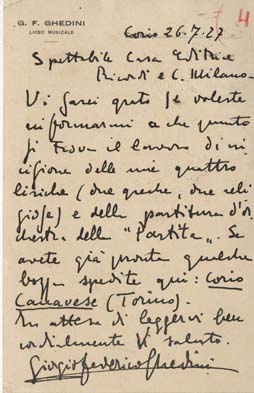 G. F. GHEDINI
LICEO MUSICALE
4
Corio 26-7-27
Spettabile Casa Editrice
Ricordi e C. Milano-
Vi sarei grato se voleste
informarmi a che punto
si trova il lavoro di in-
cisione delle mie quattro
liriche (due greche, due reli
giose) e della partitura d'or
chestra della "Partita". Se
avete già pronta qualche
bozza spedite qui: Corio
Canavese (Torino).
In attesa di leggervi ben
cordialmente Vi saluto.
Giorgio Federico Ghedini